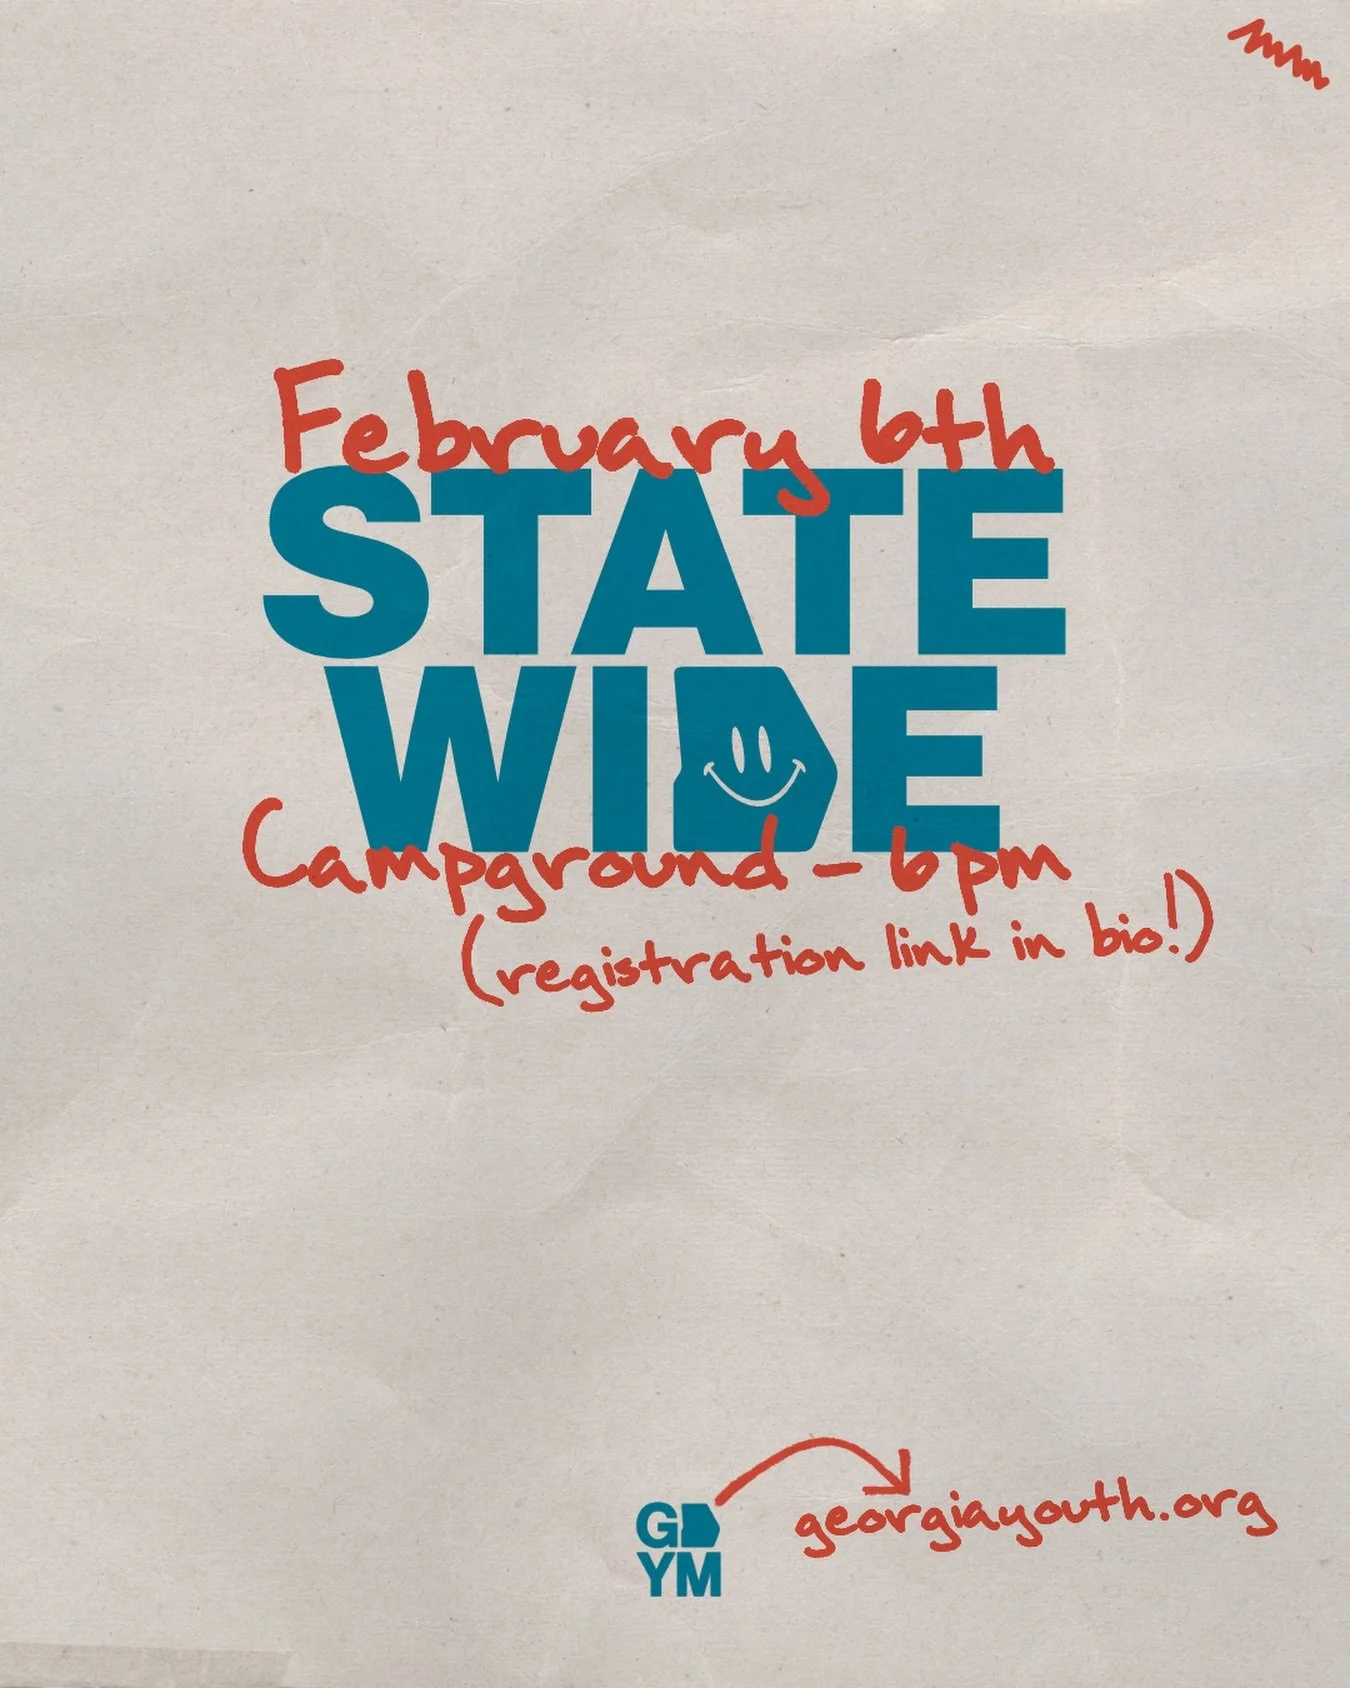 February 6th
STATE
WIDE
Campground - 6pm
(registration link in bio!)
GD
YM
georgiayouth.org